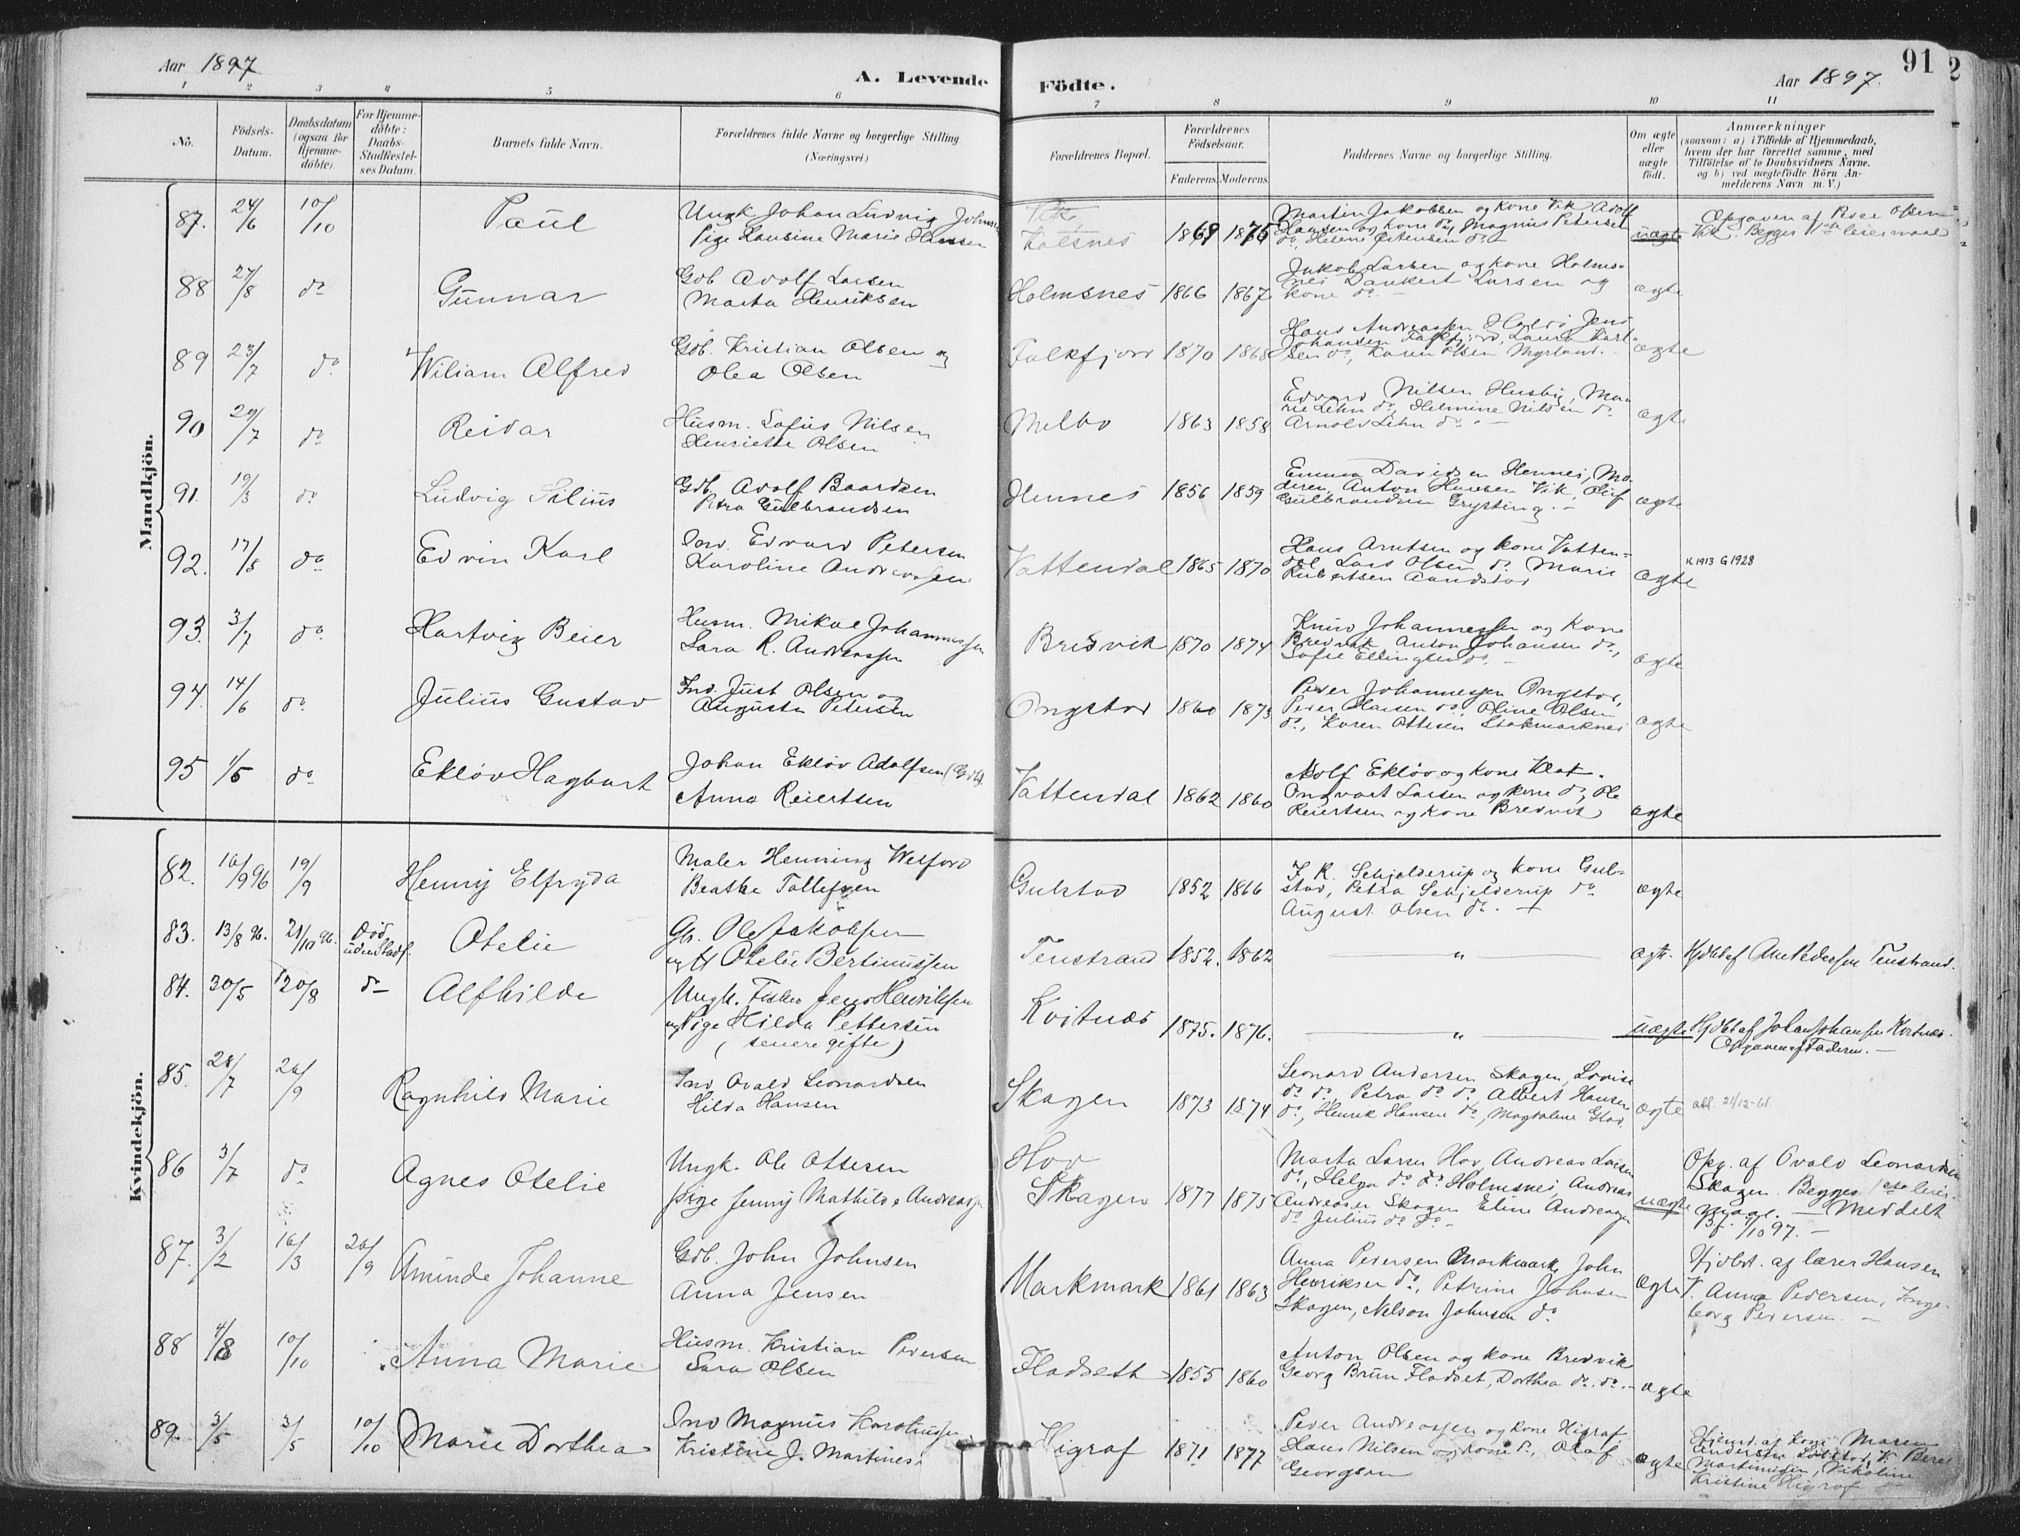 91
2
Aar 1897
A. Levende
Födte.
Aar 1897.
1 2 3 4 5 6 7 8 9 10 11
No.
Födsels-
Datum.
Daabsdatum
(ogsaa for
Hjemme-
döbte).
For Hjemme-
döbte:
Daabs-
Stadfæstel-
ses Datum.
Barnets fulde Navn.
Forældrenes fulde Navne og borgerlige Stilling
(Næringsvei)
Forældrenes Bopæl.
Forældrenes
Födselsaar.
Faderens
Moderens
Faddernes Navne og borgerlige Stilling.
Om ægte
eller
uægte
födt.
Anmærkninger
(saasom: a) i Tilfælde af Hjemmedaab,
hvem der har forrettet samme, med
Tilföielse af to Daabsvidners Navne,
og b) ved uægtefödte Börn An-
melderens Navn m. V.)
Mandkjön.
87. 24/6 10/10 Paul
Ungk Johan Ludvig Johns
Pige Hansine Marie Hansen
Vik
1869 1875
Martin Jakobsen og Kone Vik Adolf
Hansen og Kone do, Magnus Petersen
do, Helene Petersen do
uægte
Opgaven af Peder Olsen
Vik. Begges 1ste leiermaal
88 27/8 do Gunnar
Gdb Adolf Larsen
Marta Henriksen
Holmsnes 1866 1867
Jakob Larsen og Kone Holms-
nes Dankert Larsen og
Kone do. —
ægte
89 23/7 do Wiliam Alfred
Gdb. Kristian Olsen og
Olea Olsen
Falkfjord 1870 1868
Hans Andreassen Jens
Johansen Falkfjord, Laura Karl-
sen do, Karen Olsen Myrland. —
ægte
90 29/7 do Reidar
Husm. Sofus Nilsen
Henriette Olsen
Melbo 1863 1858
Edvard Nilsen Husby, Ma-
rie Lehn do, Helmine Nilsen do
Arnold Lehn do. —
ægte
91. 19/3 do Ludvig Silius
Gdb. Adolf Baardsen
Petra Gulbrandsen
Hennes 1856 1859
Emma Davidsen Hennes, Mo-
deren, Anton Hansen Vik, Oluf
Gulbrandsen Grytting. —
ægte
92. 17/8 do Edvin Karl
Ind. Edvard Petersen
Karoline Andreassen
Vattendal 1865 1870
Hans Arntsen og Kone Vatten-
dal Lars Olsen do. Marie
Robertsen Aandstad
ægte
K 1913 G 1928
93. 3/7 do Hartvig Beier
Husm. Mikal Johannessen
Sara R. Andreassen
Bredvik 1870 1874
Knud Johannessen og Kone
Bredvik Anton Johansen do,
Sofie Ellingsen do. —
ægte
94. 14/6 do Julius Gustav
Ind. Just Olsen og
Augusta Petersen
Ongstad 1860 1873
Peder Johannessen Ongstad,
Peder Hansen do, Oline Olsen
do, Karen Ottesen Stokmarknes
ægte
95 1/5 do Ekløv Hagbart
Johan Ekløv Adolfsen (Gdb)
Anna Reiertsen
Vattendal 1862 1860
Adolf Ekløv og Kone Vat.
Ongvart Larsen og Kone do, Ole
Reiertsen og Kone Bredvik
ægte
Kvindekjön.
82. 16/9 96 19/9 Henny Elfryda
Maler Henning Welford
Beathe Tollefsen
Gulstad 1852 1866
J. R. Schjelderup og Kone Gul-
stad, Petra Schjelderup do
August Olsen do. —
ægte
83. 13/8 96. 21/10 96. Død
uden Stadf.
Otelie
Gb. Ole Jakobsen
og H Otelie Bertinussen
Tenstrand 1852. 1862
— " —
ægte. Hjdbt af Ane Pedersen Tenstrand.
84. 30/5 20/8 do Alfhilde
Ungk. Fisker Jens Henriksen
og Pige Hilda Pettersen
(senere gifte)
Kvitnæs 1875. 1876.
— " —
uægte Hjdbt af Johan Johansen Kvitnæs.
Opgaven af Faderen. —
85. 28/7 26/9 Ragnhild Marie
Ind Ovald Leonardsen
Hilda Hansen
Skagen 1873 1874
Leonard Andersen Skagen, Lovise
do do, Petra do do, Albert Hansen
do, Henrik Hansen do, Magdalene Glad
ægte
att. 21/12-61.
86 3/7 do Agnes Otelie
Ungk. Ole Ottesen
pige Jenny Mathilde Andreassen
Hov
Skagen 1877 1875
Marta Larsen Hov, Andreas Larsen
do, Helga do do Holmsnes, Andreas
Andreassen Skagen Eline Andreassen
do Julius do do —
uægte
Opg. af Ovald Leonardsen
Skagen. Begges 1ste leier-
maal. — Meddelt
Bf. 1/10 97. —
87. 3/2 16/3 26/9 Aminda Johanne
Gdb. John Johnsen
Anna Jensen
Markmark 1861 1863
Anna Pedersen Markmark, John
Henriksen do, Petrine Johnsen
Skagen, Nelson Johnsen do
ægte
Hjdbt. af lærer Hansen
V. Anna Pedersen, Inge-
borg Pedersen. —
88 4/8 10/10 Anna Marie
Husm. Kristian Pedersen
Sara Olsen
Fladseth 1855 1860
Anton Olsen og Kone Bredvik
Georg Brun Fladset, Dorthea do. do. —
ægte
89. 3/5 3/5 10/10 Marie Dorthea
Ind Magnus Karolius
Kristine J. Martines
Higraf 1871 1877
Peder Andreassen og Kone Higraf
Hans Nilsen og Kone do, Olaf
Georgsen
ægte
Hjemd. af Kone Maren
Andersen V. Berit
Martinussen, Nikoline
Kristine Higraf